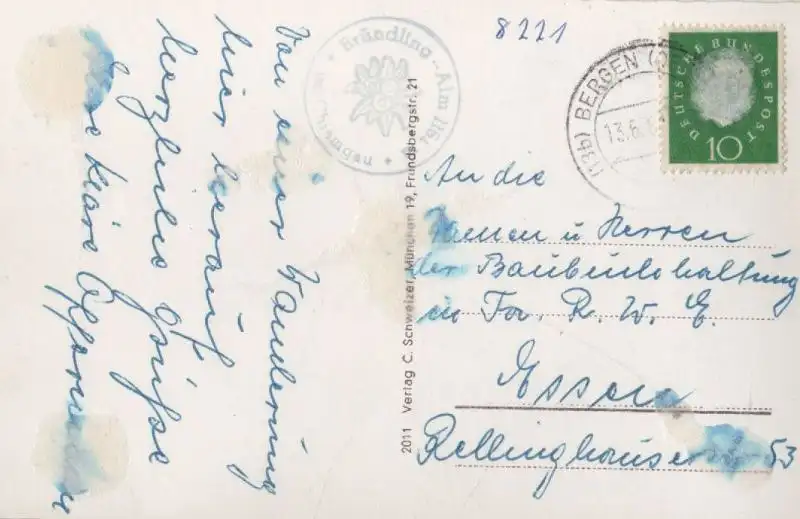 8221
Brändling-Alm
im Chiemgau
DEUTSCHE BUNDESPOST
10
(13b) BERGEN
13.6.
Von einer Wanderung
hier herauf
herzliche Grüße
2011 Verlag C. Schweizer, München 19, Frundsbergstr. 21
An die
Damen u Herren
der Baubuchhaltung
in Fa. R. W. E.
Essen
Rellinghauser 53